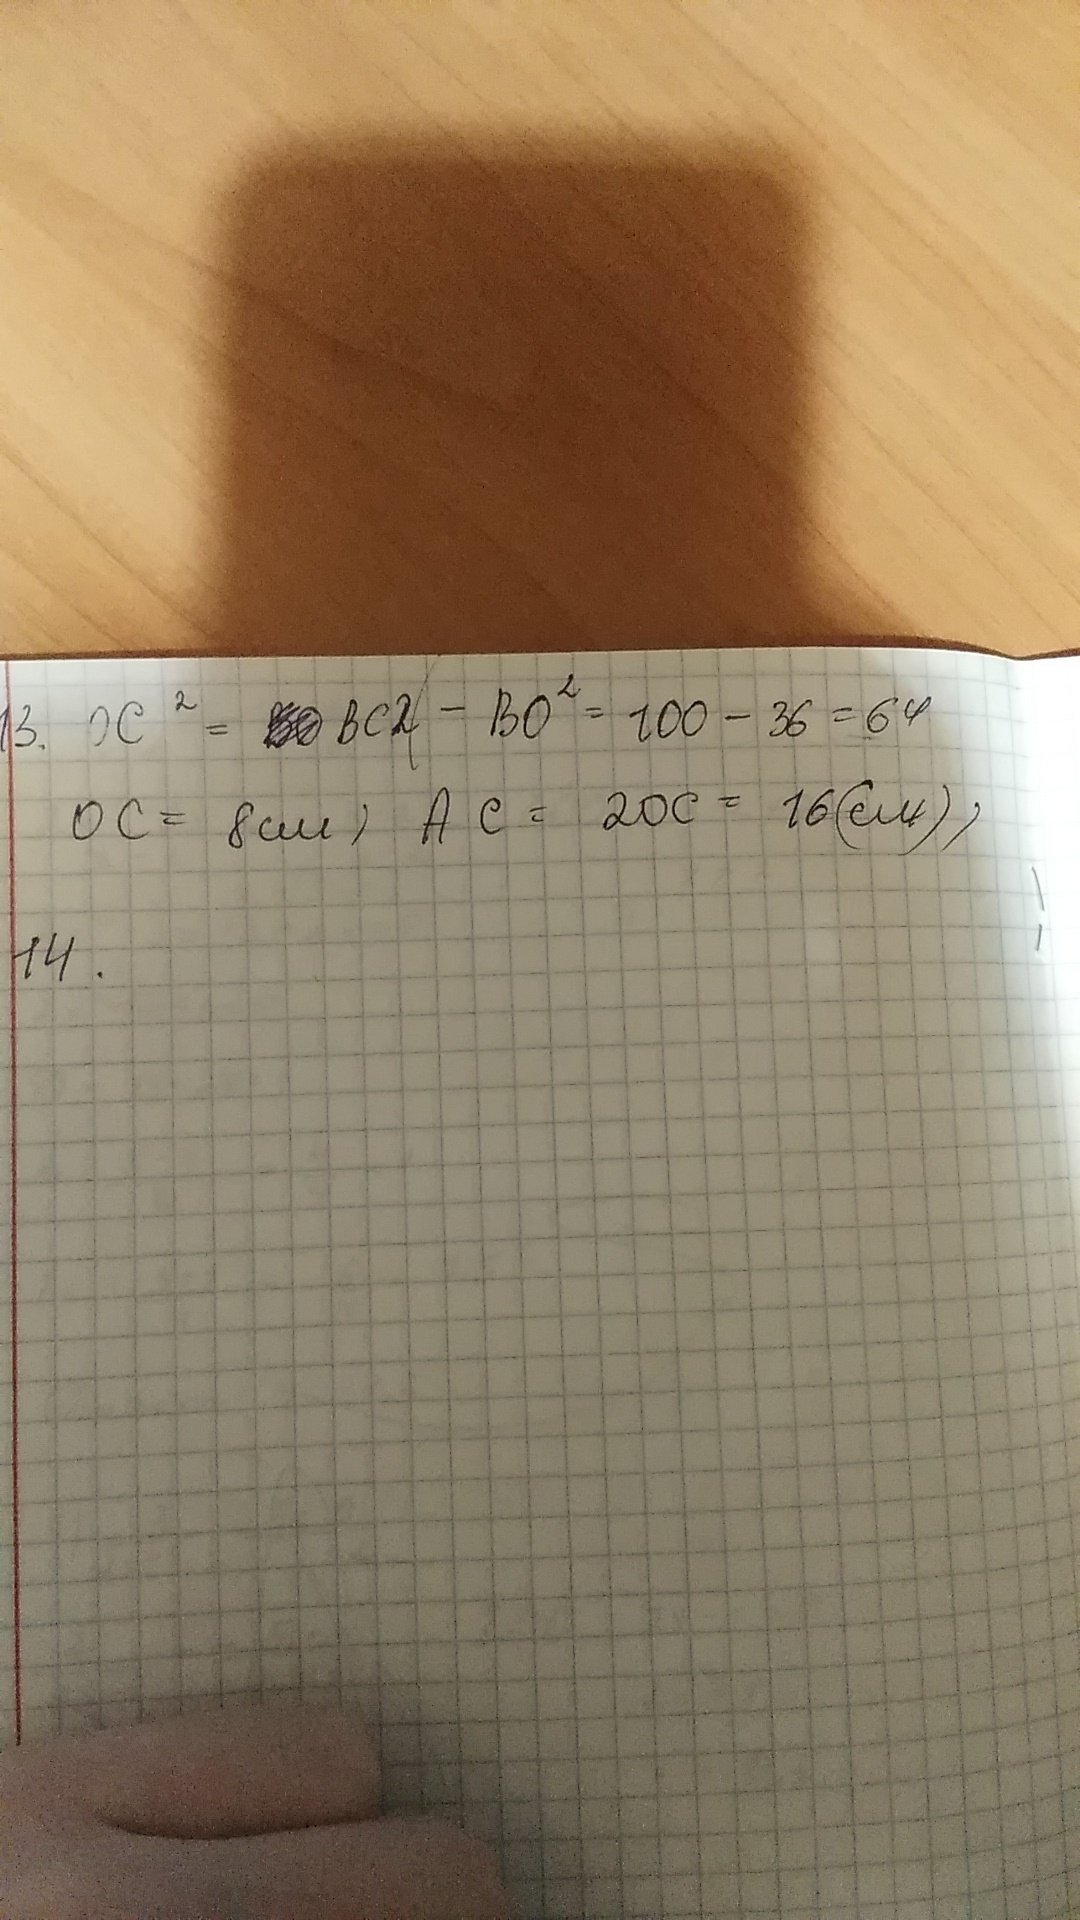 13. OC² = BC2 - BO² = 100 - 36 = 64
OC = 8см, AC = 2OC = 16(см),
14.